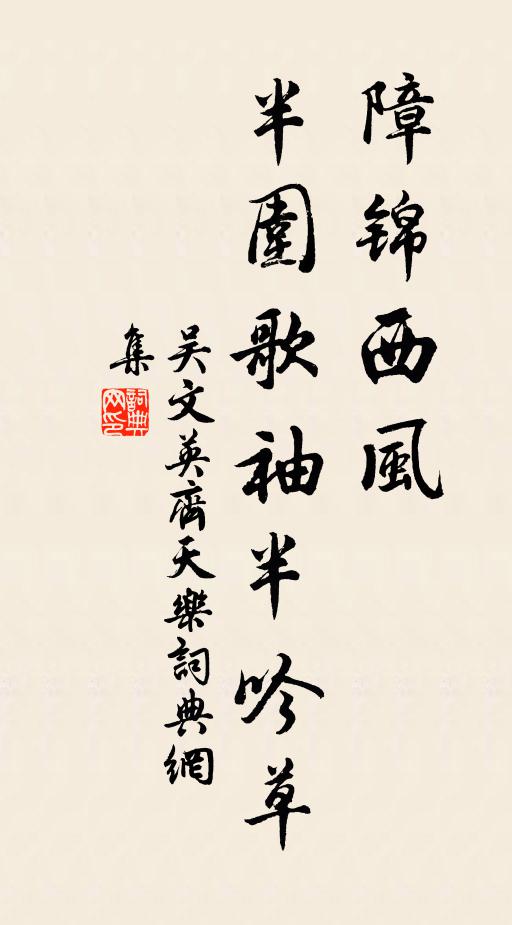 障錦西風
半圍歌袖半吟草
吴文英齊天樂詞典網
集
詞典
网印